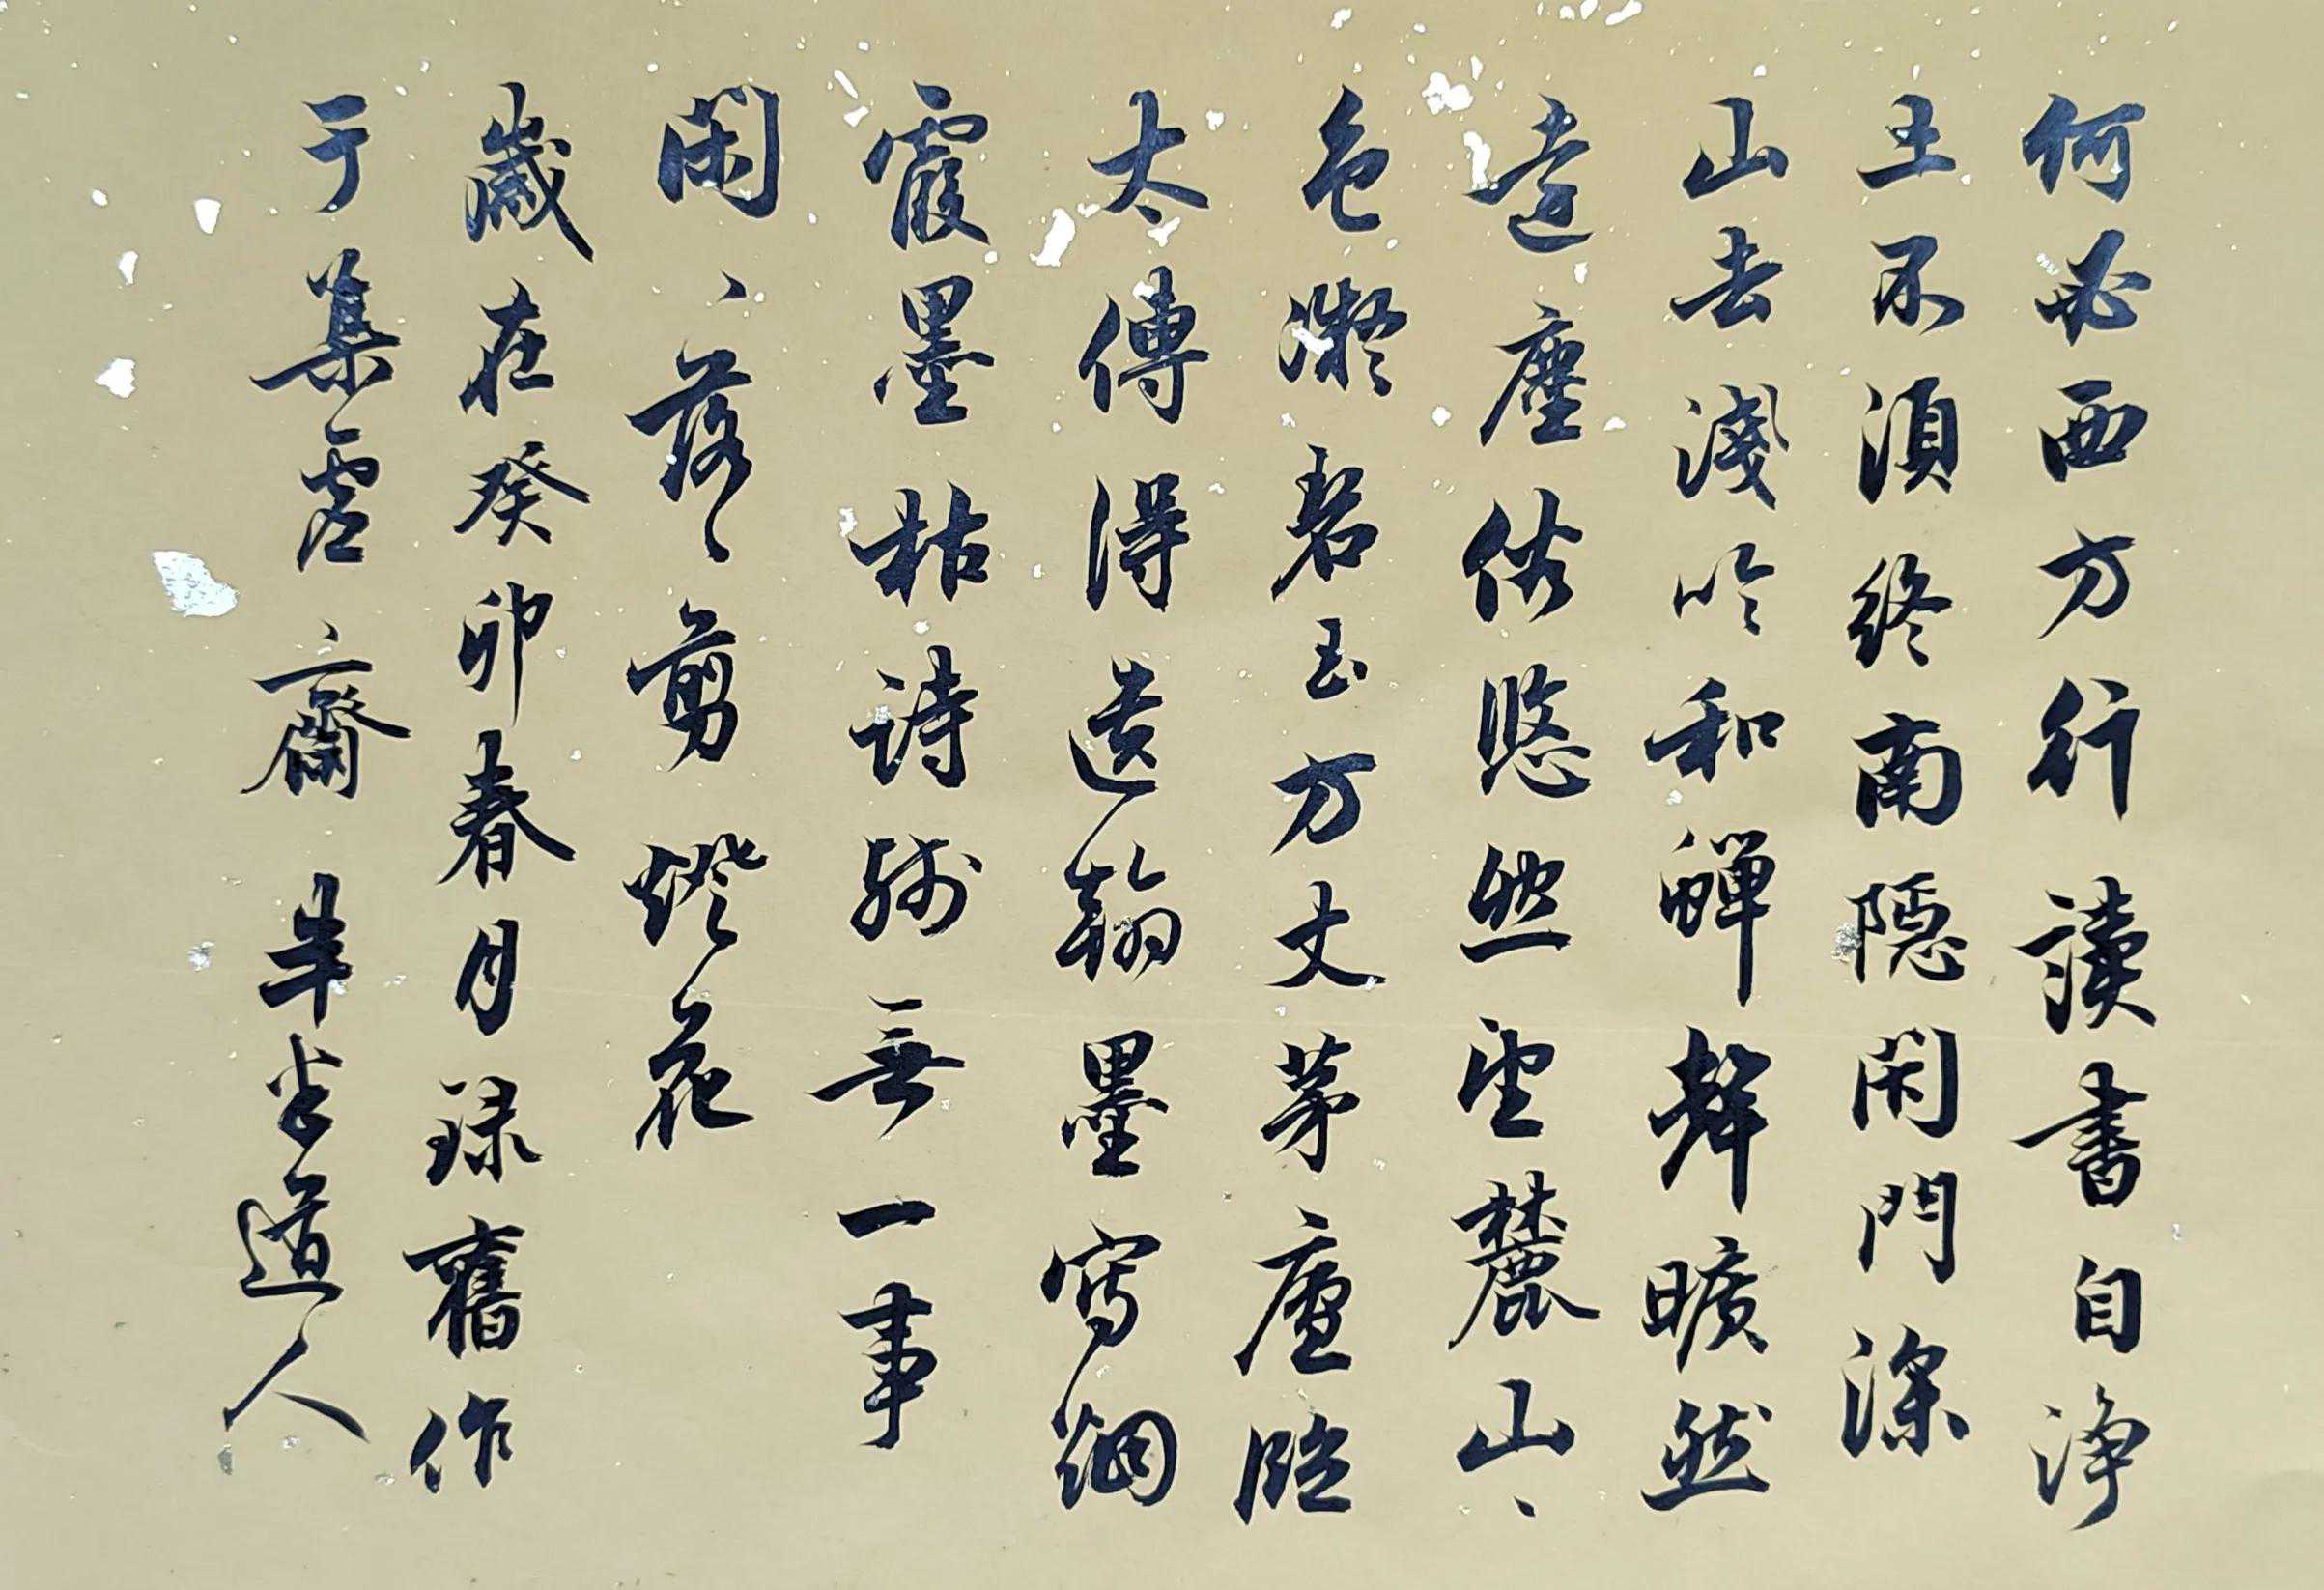 何必西方行讀書自淨
土不須終南隱閑門深
山去淺吟和蟬聲曠然
遠塵俗悠然望麓山山
色凝碧玉方丈茅廬臨
太傅得遺翰墨寫烟
霞墨枯詩殘無一事
閑閑落落剪燈花
歲在癸卯春月録舊作
于集虛齋半半道人